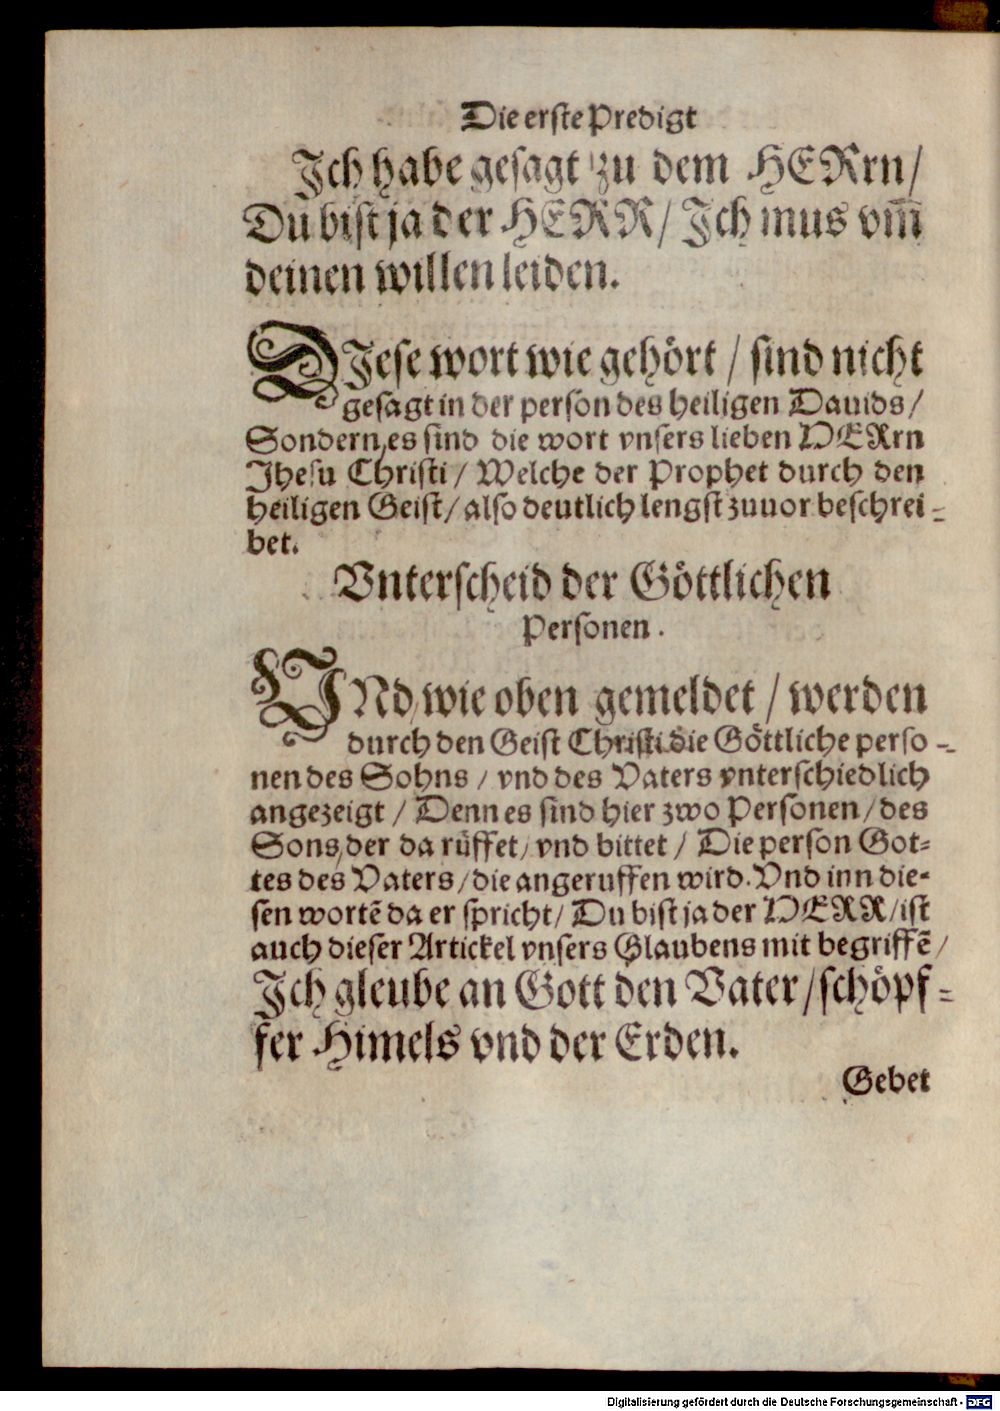 Die erste Predigt
Ich habe gesagt zu dem HERrn/
Du bist ja der HERR/ Ich mus vm̃
deinen willen leiden.
DIese wort wie gehört / sind nicht
gesagt in der person des heiligen Dauids/
Sondern es sind die wort vnsers lieben HERrn
Jhesu Christi / Welche der Prophet durch den
heiligen Geist/ also deutlich lengst zuuor beschrei-
bet.
Vnterscheid der Göttlichen
Personen.
VNd, wie oben gemeldet / werden
durch den Geist Christi die Göttliche perso-
nen des Sohns / vnd des Vaters vnterschiedlich
angezeigt / Denn es sind hier zwo Personen/ des
Sons/ der da rüffet/ vnd bittet / Die person Got-
tes des Vaters/ die angeruffen wird. Vnd inn die-
sen wortẽ da er spricht/ Du bist ja der HERR/ ist
auch dieser Artickel vnsers Glaubens mit begriffẽ/
Ich gleube an Gott den Vater/ schöpf-
fer Himels vnd der Erden.
Gebet
Digitalisierung gefördert durch die Deutsche Forschungsgemeinschaft - DFG